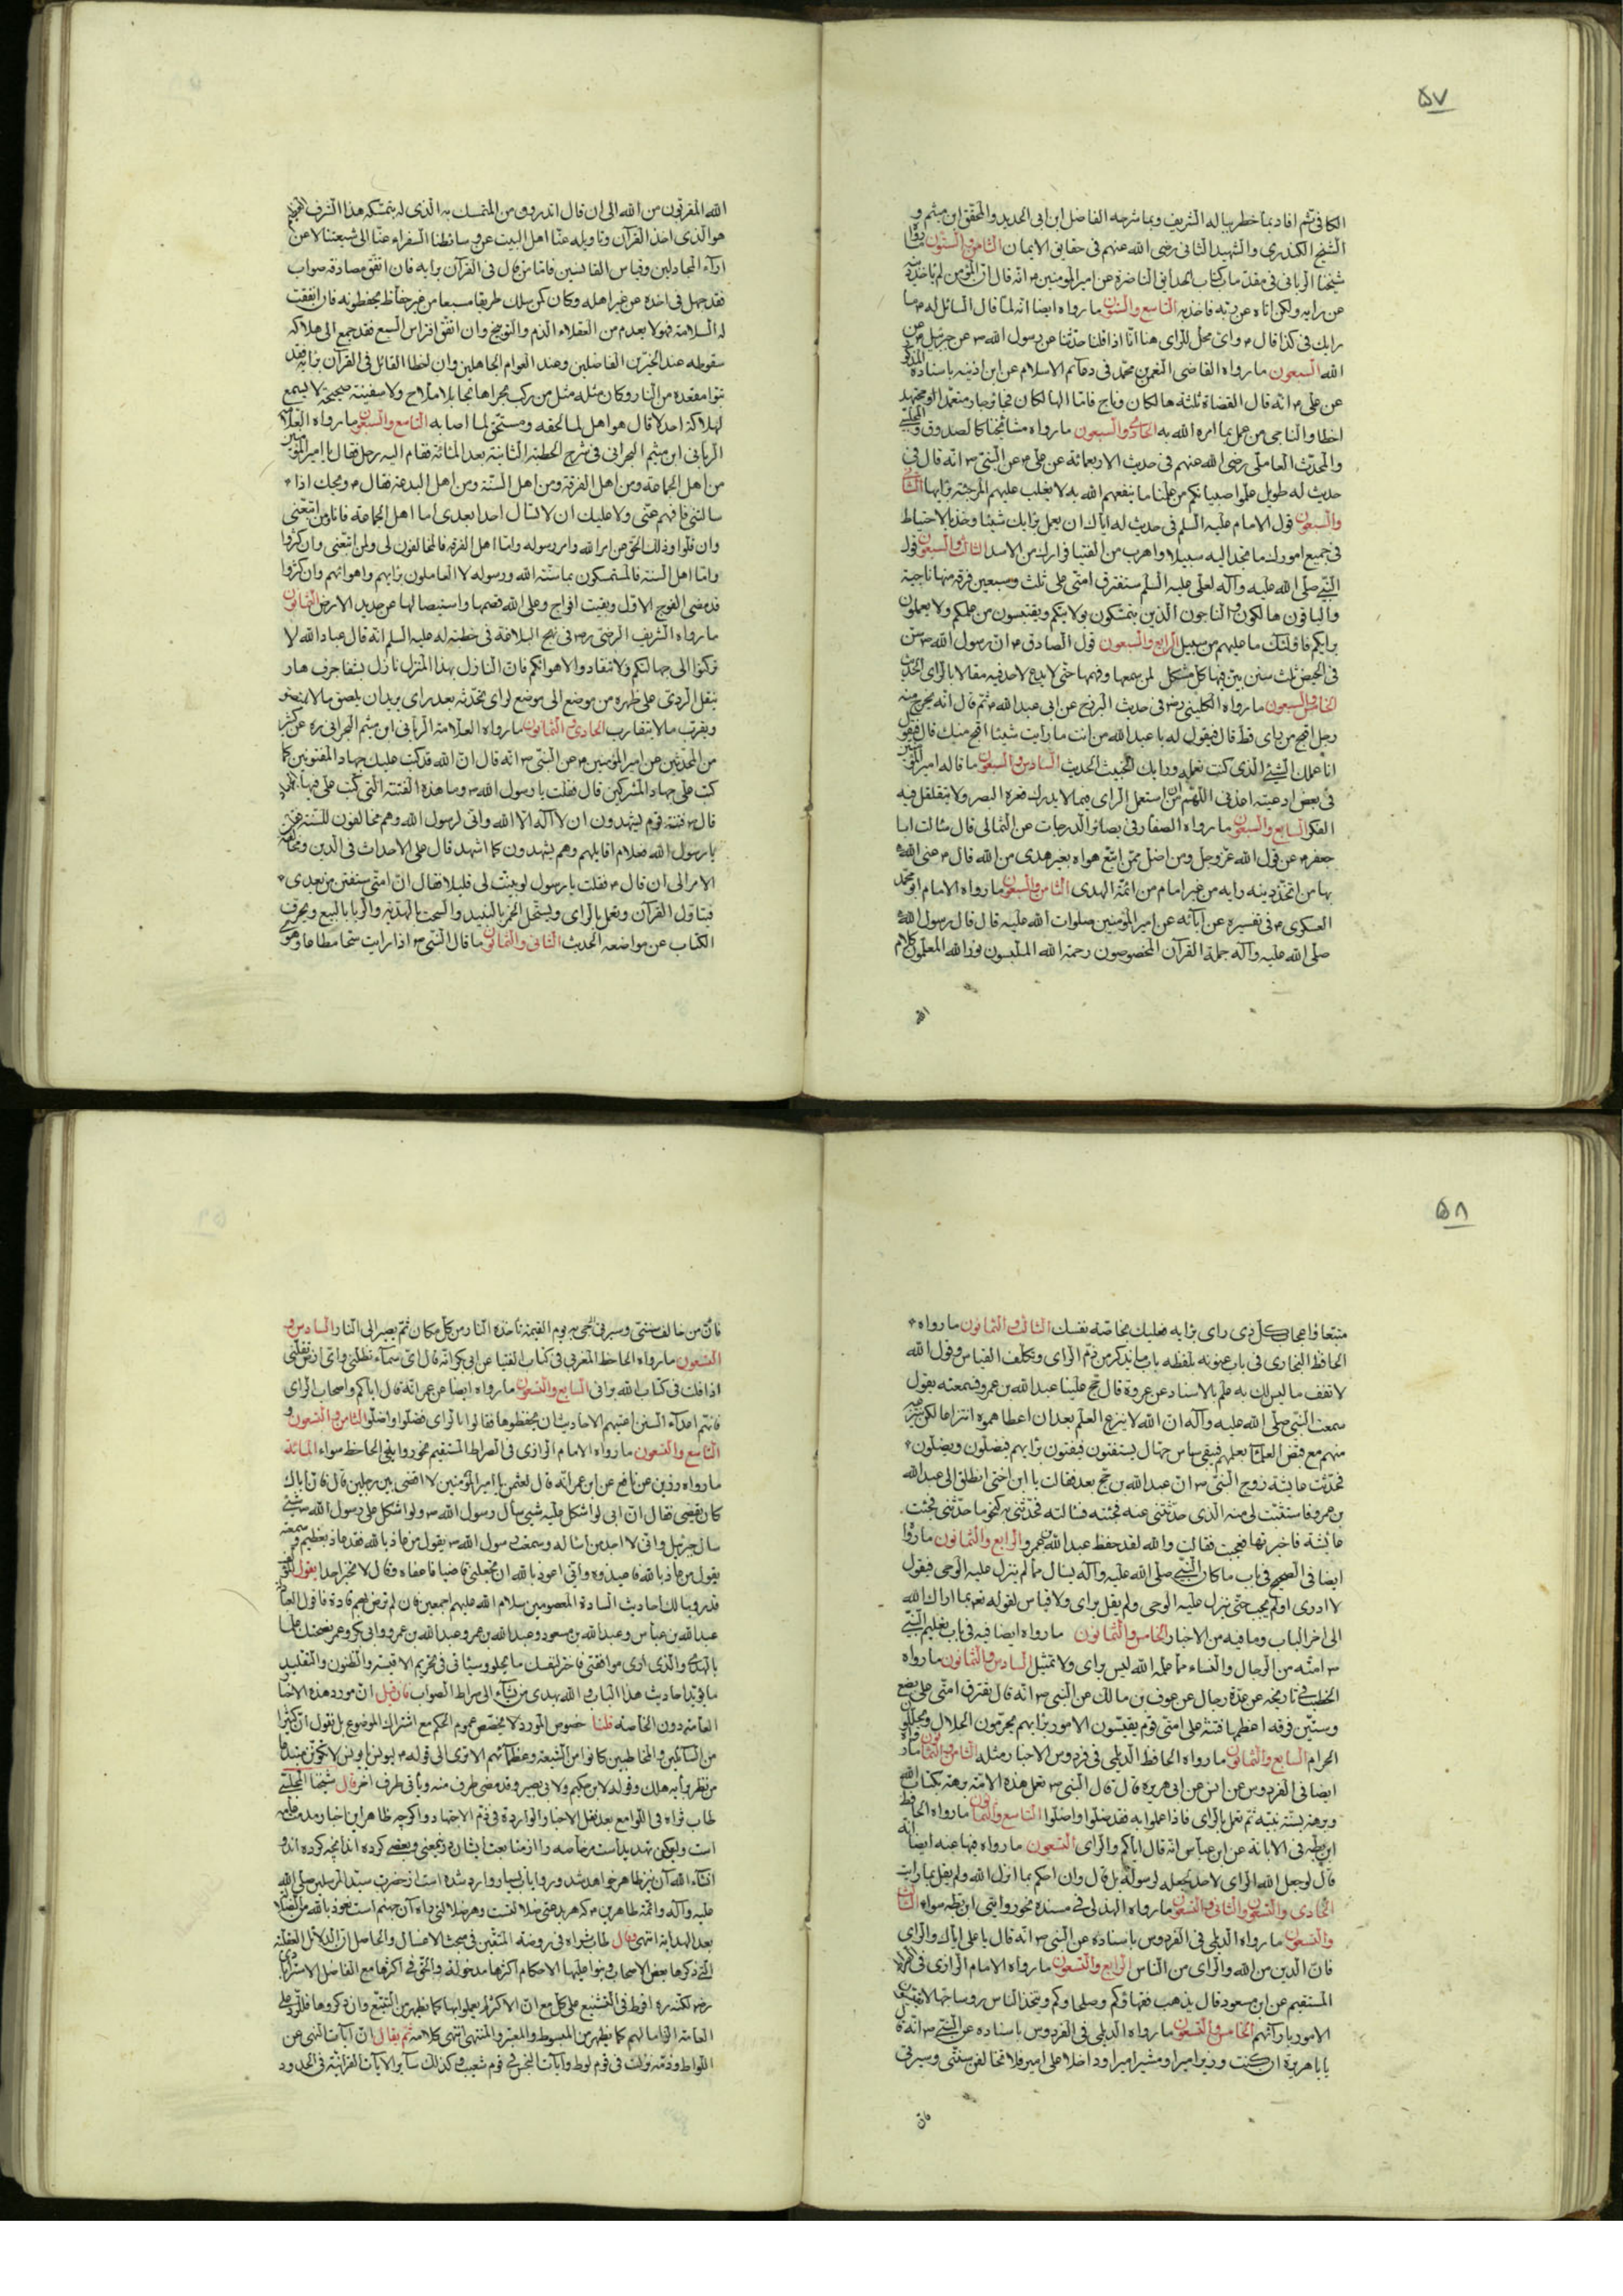 ۵۷
الكافي ثم افاد بما خطر بباله الشريف وبما شرحه الفاضل ابن ابى الحديد والمحقق ابن ميثم و
الشيخ الكندرى والشهيد الثانى رضى الله عنهم فى حقايق الايمان الثامن والستون
شيخنا الربانى فى مقدمات كتاب الحدايق الناضرة عن امير المومنين ۴ انه قال ان المؤمن لم ياخذ دينه
عن رايه ولكن اتاه عن ربه فاخذ به التاسع والستون ما رواه ايضا انه لما قال السائل له ۴ ما
رايك فى كذا قال ۴ واى محل للراى هنا انا اذا قلنا حدثنا عن رسول الله ص عن جبرئيل عن
الله السبعون ما رواه القاضى النعمن بن محمد فى دعائم الاسلام عن ابن اذينه باسناده
عن على ۴ انه قال القضاة ثلثة هالكان وناج فاما الهالكان فجائر جار متعمدا ومجتهد
اخطا والناجى من عمل بما امره الله به الحادى والسبعون ما رواه مشائخنا كالصدوق والمجلسى
والمحدث العاملى رضى الله عنهم فى حديث الاربعمائة عن على ۴ عن النبى ص انه قال فى
حديث له طويل علموا صبيانكم من علمنا ما ينفعهم الله به لا يغلب عليهم المرجئة برايها الثانى
والسبعون قول الامام عليه السلم فى حديث له اياك ان تعمل برايك شيئا وخذ بالاحتياط
فى جميع امورك ما تجد اليه سبيلا واهرب من الفتيا فرارك من الاسد الثالث والسبعون قول
النبى صلى الله عليه وآله لعلى عليه السلم ستفترق امتى على ثلث وسبعين فرقة منها ناجية
والباقون هالكون والناجون الذين يتمسكون بولايتكم ويقتبسون من علمكم ولا يعملون
برايكم فاولئك ما عليهم من سبيل الرابع والسبعون قول الصادق ۴ ان رسول الله ص سن
فى الحيض ثلث سنن بين فيها كل مشكل لمن سمعها وفهمها حتى لا يدع لاحد فيه مقالا بالراى الحديث
الخامس والسبعون ما رواه الكلينى رض فى حديث البرزخ عن ابى عبد الله ۴ ثم قال انه يخرج منه
رجل اقبح من راى قط قال فيقول له يا عبد الله من انت ما رايت شيئا اقبح منك قال فيقول
انا عملك السيئ الذى كنت تعمله ورايك الخبيث الحديث السادس والسبعون ما قاله امير المؤمنين
فى بعض ادعيته اعذنى اللهم من ان استعمل الراى فيما لا يدرك قعره البصر ولا يتقلقل فيه
الفكر السابع والسبعون ما رواه الصفار فى بصائر الدرجات عن الثمالى قال سئالت ابا
جعفر ۴ عن قول الله عز وجل ومن اضل ممن اتبع هواه بغير هدى من الله قال ۴ عنى الله
بها من اتخذ دينه رايه من غير امام من ائمة الهدى الثامن والسبعون ما رواه الامام ابو محمد
العسكرى ۴ فى تفسيره عن ابائه عن امير المؤمنين صلوات الله عليه قال قال رسول الله
صلى الله عليه وآله حملة القرآن المخصوصون رحمة الله الملبسون نور الله المعلمون كلام
الله
الله المقربون من الله الى ان قال اتدرون من المتمسك به الذى له بتمسكه هذا الشرف العظيم
هو الذى اخذ القرآن وتاويله عنا اهل البيت عن وسائطنا السفراء عنا الى شيعتنا لا عن
اراء المجادلين وقياس القائسين فاما من قال فى القرآن برايه فان اتفق مصادفة صواب
فقد جهل فى اخذه عن غير اهله وكان كمن سلك طريقا مسبعا من غير حفاظ يحفظونه فان اتفقت
له السلامة فهو لا يعدم من العقلاء الذم والتوبيخ وان اتفق افتراس السبع فقد جمع الى هلاكه
سقوطه عند الخيرين الفاضلين وعند العوام الجاهلين وان اخطا القائل فى القرآن برايه فقد
تبوا مقعده من النار وكان مثله مثل من ركب بحرا هائجا بلا ملاح ولا سفينة صحيحة لا يسمع
لهلاكه احد الا قال هو اهل لما لحقه ومستحق لما اصابه التاسع والسبعون ما رواه العلامة
الربانى ابن ميثم البحرانى فى شرح الخطبة الثانية بعد المائة فقام اليه رجل فقال يا امير المؤمنين
من اهل الجماعة ومن اهل الفرقة ومن اهل السنة ومن اهل البدعة فقال ۴ ويحك اذا
سالتنى فافهم عنى ولا عليك ان لا تسال احدا بعدى اما اهل الجماعة فانا ومن اتبعنى
وان قلوا وذلك الحق عن امر الله وامر رسوله واما اهل الفرقة فالمخالفون لى ولمن اتبعنى وان كثروا
واما اهل السنة فالمتمسكون بما سنة الله ورسوله لا العاملون برايهم واهوائهم وان كثروا
قد مضى الفوج الاول وبقيت افواج وعلى الله قصمها واستيصالها عن جديد الارض الثمانون
ما رواه الشريف الرضى ره فى نهج البلاغة فى خطبة له عليه السلم انه قال عباد الله لا
تركنوا الى جهالتكم ولا تنقادوا لاهوائكم فان النازل بهذا المنزل نازل بشفا جرف هار
ينقل الردى على ظهره من موضع الى موضع لراى يحدثه بعد راى يريد ان يلصق ما لا يلتصق
ويقرب ما لا يتقارب الحادى والثمانون ما رواه العلامة الربانى ابن ميثم البحرانى ره عن كثير
من المحدثين عن امير المؤمنين ۴ عن النبى ص انه قال ان الله قد كتب عليك جهاد المفتونين كما
كتب على جهاد المشركين قال فقلت يا رسول الله ص وما هذه الفتنة التى كتب على فيها الجهاد
قال ص فتنة قوم يشهدون ان لا اله الا الله وانى لرسول الله وهم مخالفون للسنة فقلت
يا رسول الله فعلام اقاتلهم وهم يشهدون كما اشهد قال على الاحداث فى الدين ومخالفة
الامر الى ان قال ۴ فقلت يا رسول لو بينت لى قليلا فقال ان امتى ستفتن من بعدى
فيتاول القرآن ويعمل بالراى ويستحل الخمر بالنبيذ والسحت بالهدية والربا بالبيع ويحرف
الكتاب عن مواضعه الحديث الثانى والثمانون ما قال النبى ص اذا رايت شحا مطاعا وهوى
۵۸
متبعا واعجاب كل ذى راى برايه فعليك بخاصة نفسك الثالث والثمانون ما رواه
الحافظ البخارى فى باب عنونه بلفظه باب ما يذكر من ذم الراى وتكلف القياس وقول الله
لا تقف ما ليس لك به علم بالاسناد عن عروة قال حج علينا عبد الله بن عمرو فسمعته يقول
سمعت النبى صلى الله عليه وآله ان الله لا ينزع العلم بعد ان اعطاهموه انتزاعا لكن ينتزعه
منهم مع قبض العلماء بعلمهم فيبقى ناس جهال يستفتون فيفتون برايهم فيضلون ويضلون
فحدثت عايشة زوج النبى ص ان عبد الله بن حج بعد فقالت يا ابن اختى انطلق الى عبد الله
بن عمرو فاستثبت لى منه الذى حدثتنى عنه فجئته فسئالته فحدثنى به كنحو ما حدثنى فجئت
عائشة فاخبرتها فعجبت فقالت والله لقد حفظ عبد الله بن عمرو الرابع والثمانون ما رواه
ايضا فى الصحيح فى باب ما كان النبى صلى الله عليه وآله يسال مما لم ينزل عليه الوحى فيقول
لا ادرى او لم يجب حتى ينزل عليه الوحى ولم يقل براى ولا قياس لقوله تعالى بما اراك الله
الى اخر الباب وما فيه من الاخبار الخامس والثمانون ما رواه ايضا فيه فى باب تعليم النبى
ص امته من الرجال والنساء مما علمه الله ليس براى ولا تمثيل السادس والثمانون ما رواه
الخطيب فى تاريخه عن عدة رجال عن عوف بن مالك عن النبى ص انه قال تفترق امتى على بضع
وستين فرقة اعظمها فتنة على امتى قوم يقيسون الامور برايهم يحرمون الحلال ويحللون
الحرام السابع والثمانون ما رواه الحافظ الديلمى فى فردوس الاخبار مثله الثامن والثمانون ما رواه
ايضا فى الفردوس عن انس عن ابى هريره قال قال النبى ص تعمل هذه الامة برهة بكتاب الله
وبرهة بسنة نبيه ثم تعمل بالراى فاذا عملوا به فقد ضلوا واضلوا التاسع والثمانون ما رواه الحافظ
ابن بطه فى الابانة عن ابن عباس انه قال اياكم والراى التسعون ما رواه فيها عنه ايضا انه
قال لو جعل الله الراى لاحد لجعله لرسوله بل قال وان احكم بما انزل الله ولم يقل بما رايت
الحادى والتسعون والثانى والتسعون ما رواه الهذلى فى مسنده نحو روايتى ابن بطه سواء الثالث
والتسعون ما رواه الديلمى فى الفردوس باسناده عن النبى ص انه قال يا على اياك والراى
فان الدين من الله والراى من الناس الرابع والتسعون ما رواه الامام الرازى فى الصراط
المستقيم عن ابن مسعود قال يذهب فقهاؤكم وصلحاؤكم ويتخذ الناس رؤسا جهالا يقيسون
الامور بارائهم الخامس والتسعون ما رواه الديلمى فى الفردوس باسناده عن النبى ص انه قال
يا با هريرة ان كنت وزير امير او مشير امير او داخلا على امير فلا تخالفن سنتى وسيرتى
فان
فان من خالف سنتى وسيرتى جئ به يوم القيمة تاخذه النار من كل مكان ثم يصير الى النار السادس و
التسعون ما رواه الحافظ المغربى فى كتاب الفتيا عن ابى بكر انه قال اى سماء تظلنى واى ارض تقلنى
اذا قلت فى كتاب الله برائى السابع والتسعون ما رواه ايضا عن عمر انه قال اياكم واصحاب الراى
فانهم اعداء السنن اعيتهم الاحاديث ان يحفظوها فقالوا بالراى فضلوا واضلوا الثامن والتسعون و
التاسع والتسعون ما رواه الامام الرازى فى الصراط المستقيم نحو روايتى الحافظ سواء المائة
ما رواه رزين عن نافع عن ابن عمر انه قال لعثمن يا امير المؤمنين لا اقضى بين رجلين قال فان اباك
كان يقضى فقال ان ابى لو اشكل عليه شىء سأل رسول الله ص ولو اشكل على رسول الله ص شىء
سال جبرئيل وانى لا اجد من اسأله وسمعت رسول الله ص يقول من عاذ بالله فقد عاذ بعظيم وسمعته
يقول من عاذ بالله فاعيذوه وانى اعوذ بالله ان تجعلنى قاضيا فاعفاه وقال لا تخبر احدا يقول المؤلف
قد روينا لك احاديث السادة المعصومين سلام الله عليهم اجمعين فان لم ترض بهم قادة فاقوال العامة
عبد الله بن عباس وعبد الله بن مسعود وعبد الله بن عمر وعبد الله بن عمرو وابى بكر وعمر
ما يحلو وسيأتى فى تحريم الاقيسة والظنون والتقليد
احاديث هذا الباب والله يهدى من يشاء الى صراط الصواب فان قيل ان مورد هذه الاخبار
العامة دون الخاصة قلنا خصوص المورد لا يخصص عموم الحكم مع اشتراك الموضوع بل نقول ان كثيرا
من السائلين والمخاطبين كانوا من الشيعة وعظمائهم الا ترى الى قوله ۴ ليونس يا يونس لا تكونن مبتدعا
من نظر برايه هلك وقوله لابن حكيم ولابى بصير وقد مضى طرف منه وياتى طرف اخر قال شيخنا المجلسى
طاب ثراه فى اللوامع بعد نقل الاخبار الواردة فى ذم الاجتهاد واگر چه ظاهر اين اخبار مذمت عامه
است
انشاء الله آن نيز ظاهر خواهد شد وروايات بسيار وارد شده است از حضرت سيد المرسلين صلى الله
عليه وآله وائمه طاهرين ۴ كه هر بدعتى ضلالتست وهر ضلالتى راه آن جهنم است نعوذ بالله من الضلالة
بعد الهداية انتهى وقال طاب ثراه فى روضة المتقين فى مبحث الاغسال والحاصل ان الدلائل العقلية
التى ذكرها بعض الاصحاب وبنوا عليها الاحكام اكثرها مدخولة والحق فى اكثرها مع الفاضل الاسترابادى
رض لكنه ره افرط فى التشنيع على كل مع ان الاكثر لم يعملوا بها كما يظهر من التتبع وان ذكروها فللرد على
العامة الزاما لهم كما يظهر من المبسوط والمعتبر والمنتهى انتهى كلامه ثم يقال ان آيات النهى عن
اللواط وذمه نزلت فى قوم لوط وآيات البخس فى قوم شعيب وكذلك سائر الايات القرآنية فى الحدود